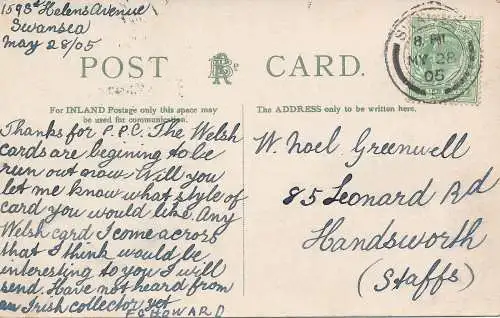 159 St Helens Avenue
Swansea
May 28/05
8 PM
MY 28
05
POST CARD.
For INLAND Postage only this space may
be used for communication.
The ADDRESS only to be written here.
Thanks for P.P.C. The Welsh
cards are begining to be
run out now. Will you
let me know what style of
card you would like. Any
Welsh card I come across
that I think would be
interesting to you I will
send. Have not heard from
an Irish collector yet
F G HOWARD
W. Noel Greenwell
85 Leonard Rd
Handsworth
(Staffs)